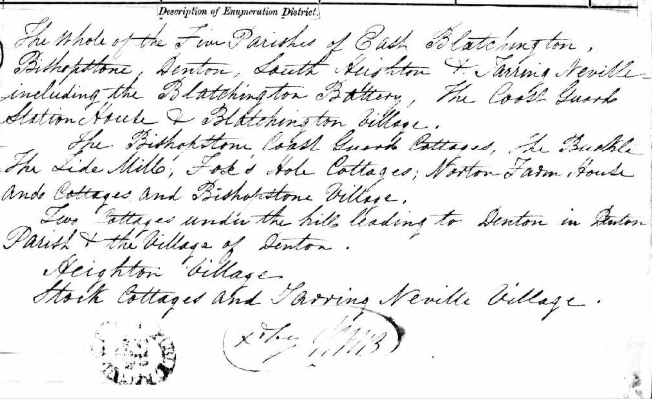 Description of Enumeration District.
The Whole of the Five Parishes of East Blatchington,
Bishopstone, Denton, South Heighton & Tarring Neville
including the Blatchington Battery, The Coast Guard
Station House & Blatchington Village.
The Bishopstone Coast Guard Cottages, The Buckle
The Tide Mill, Fox's Hole Cottages; Norton Farm House
and Cottages and Bishopstone Village.
Two Cottages under the hill leading to Denton in Denton
Parish & the Village of Denton.
Heighton Village
Stock Cottages and Tarring Neville Village.
by